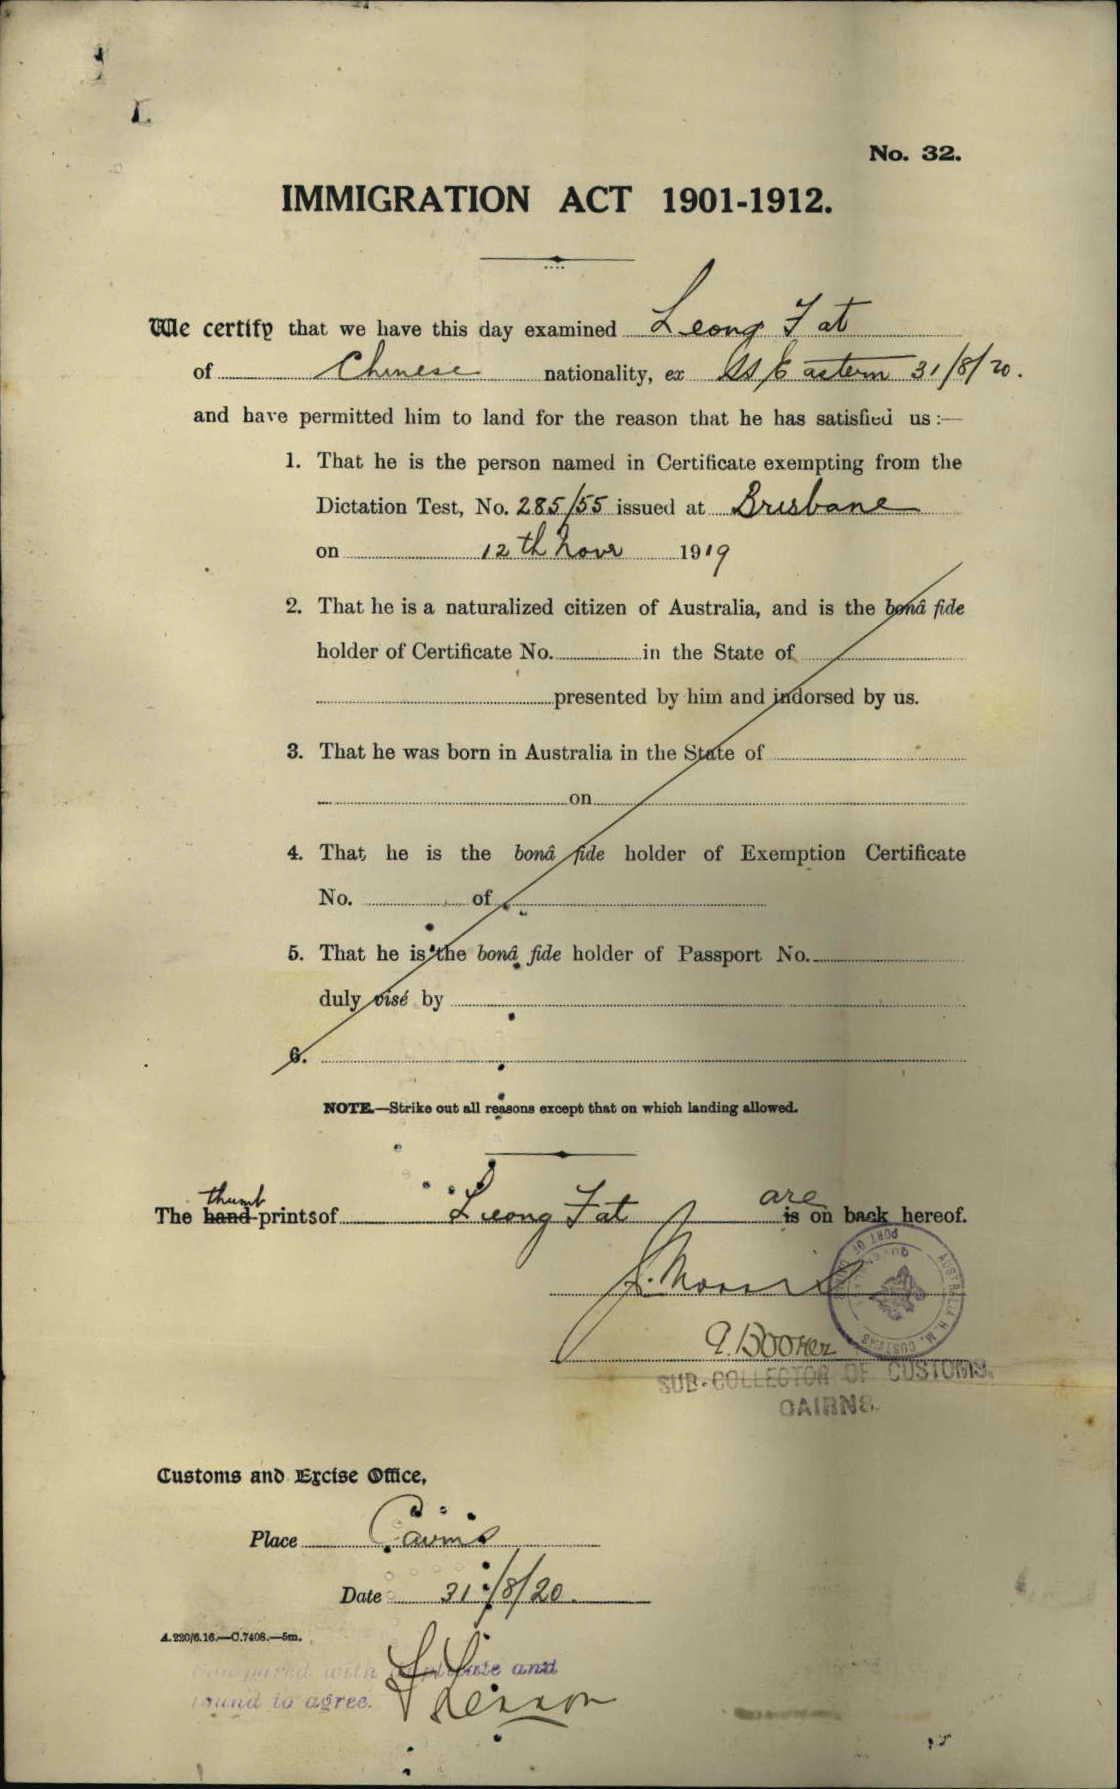 No. 32.
IMMIGRATION ACT 1901-1912.
We certify that we have this day examined Leong Fat
of Chinese nationality, ex SS Eastern 31/8/20.
and have permitted him to land for the reason that he has satisfied us:—
1. That he is the person named in Certificate exempting from the
Dictation Test, No. 285/55 issued at Brisbane
on 12th Novr 1919
2. That he is a naturalized citizen of Australia, and is the bonâ fide
holder of Certificate No. in the State of
presented by him and indorsed by us.
3. That he was born in Australia in the State of
on
4. That he is the bonâ fide holder of Exemption Certificate
No. of
5. That he is the bonâ fide holder of Passport No.
duly visé by
6.
NOTE.—Strike out all reasons except that on which landing allowed.
thumb are
The hand-prints of Leong Fat is on back hereof.
PORT OF AUSTRALIA H. M. CUSTOMS
SUB-COLLECTOR OF CUSTOMS.
CAIRNS.
Customs and Excise Office,
Place Cairns
Date 31/8/20.
A.220/6.16.—C.7408.—5m.
Compared with duplicate and
found to agree.